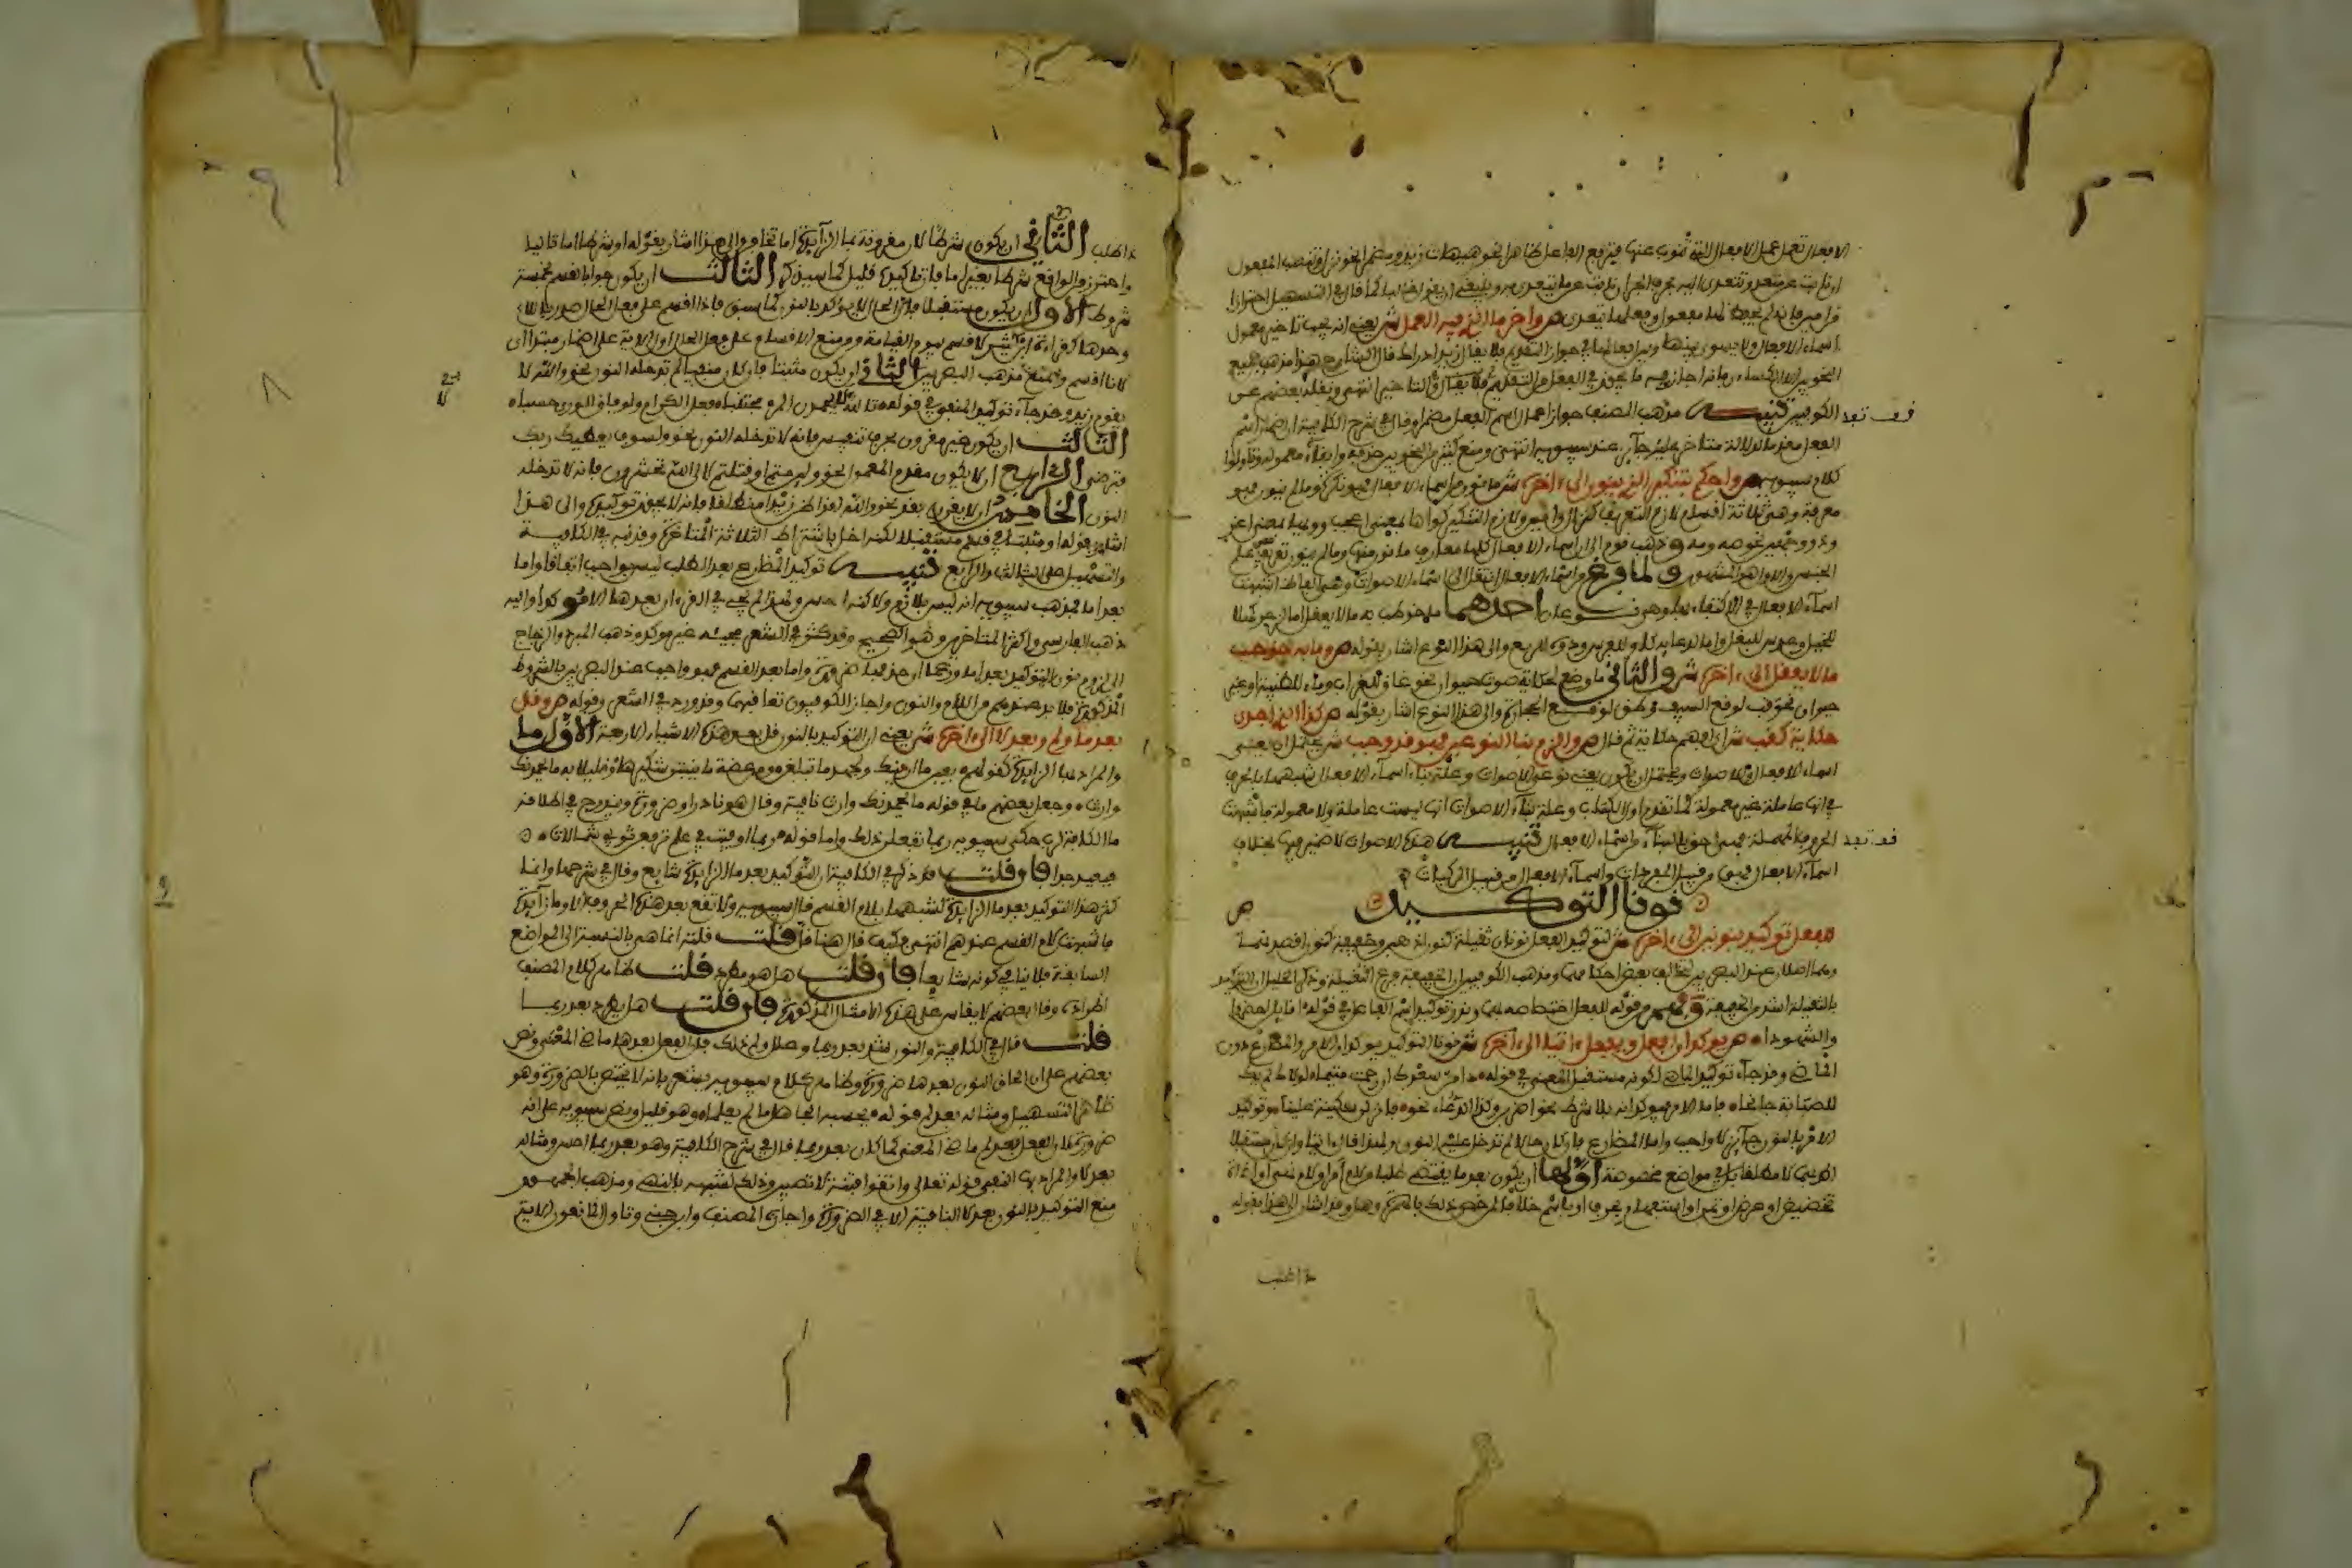 الافعال تعمل عمل الافعال التي تنوب عنها فترفع الفاعل ظاهرا نحو هيهات زيد ومضمرا نحو نزال وتنصب المفعول
ان نابت عن متعد وتتعدى اليه بحرف الجر ان نابت عن ما يتعدى به
ص واخر ما لذي فيه العمل ش يعني انه يجب تاخير معمول
اسماء الافعال ولا يسوى بينها وبين افعالها في جواز التقديم فلا يقال زيدا دراك قال الشارح هذا مذهب جميع
النحويين الا الكسائي فانه اجاز فيه ما يجوز في الفعل من التقديم
الكوفيين تنبيه مذهب المصنف جواز اعمال اسم الفعل مضمرا وقال في شرح الكافية ان اضمار اسم
الفعل مقدما لدلالة متاخر عليه جائز عند سيبويه انتهى ومنع كثير من النحويين حذفه وابقاء معموله وتاولوا
كلام سيبويه ص واحكم بتنكير الذي ينون الى اخره ش ما نون من اسماء الافعال فهو نكرة وما لم ينون فهو
معرفة وهي ثلاثة اقسام لازم التعريف كنزال وامين ولازم التنكير كواها بمعنى اعجب وويها بمعنى اغر
وذو وجهين نحو صه ومه وذهب قوم الى ان اسماء الافعال كلها معارف ما نون منها وما لم ينون تعريف علم
الجنس والاول هو المشهور ولما فرغ من اسماء الافعال انتقل الى اسماء الاصوات وهي الفاظ اشبهت
اسماء الافعال في الاكتفاء بها وهي نوعان احدهما ما خوطب به ما لا يعقل اما لزجر كهلا
للخيل وعدس للبغل واما لدعاء والى هذا النوع اشار بقوله ص وما به خوطب
ما لا يعقل الى اخره ش والثاني ما وضع لحكاية صوت حيوان نحو غاق للغراب وماء للظبية او غير
حيوان نحو قب لوقع السيف وطق لوقع الحجارة والى هذا النوع اشار بقوله ص كذا الذي اجدى
حكاية كقب ش اي افهم حكاية ثم قال ص والزم بنا النوعين فهو قد وجب ش يحتمل ان يعني
اسماء الافعال والاصوات ويحتمل ان يكون يعني نوعي الاصوات وعلة بناء اسماء الافعال شبهها بالحرف
في انها عاملة غير معمولة كما تقدم اول الكتاب وعلة بناء الاصوات انها ليست عاملة ولا معمولة فاشبهت
الحروف المهملة فهي احق بالبناء من اسماء الافعال تنبيه هذه الاصوات لا ضمير فيها بخلاف
اسماء الافعال فهي من قبيل المفردات واسماء الافعال من قبيل المركبات
نونا التوكيد
ص
للفعل توكيد بنونين الى اخره ش لتوكيد الفعل نونان ثقيلة كنون اذهبن وخفيفة كنون اقصدنهما
وهما اصلان عند البصريين لتخالف بعض احكامهما ومذهب الكوفيين ان الخفيفة فرع الثقيلة وذكر الخليل ان التوكيد
بالثقيلة اشد من الخفيفة وفهم من قوله للفعل اختصاصه بهما وندر توكيد اسم الفاعل في قوله اقائلن احضروا
والشهودا ص يوكدان افعل ويفعل اتيا الى اخره ش نونا التوكيد يوكدان الامر والمضارع دون
الماضي وقد جاء توكيد الماضي لكونه مستقبل المعنى في قوله دامن سعدك ان رحمت متيما لولاك لم يك
للصبابة جانحا فاما الامر فيوكدانه بلا شرط نحو اضربن وكذا الدعاء نحو فانزلن سكينة علينا وتوكيد
الامر بالنون جائز لا واجب واما المضارع فان كان حالا لم تدخل عليه النون ولهذا قال اتيا وان كان مستقبلا
اكد بها لا مطلقا بل في مواضع مخصوصة اولها ان يكون بعد ما يقتضي طلبا من لام امر او لا نهي او اداة
تحضيض او عرض او تمن او استفهام بحرف او باسم خلافا لمن خص ذلك بالهمزة وهل وقد اشار الى هذا بقوله
ذا طلب
فف تعد
فف تعد
ذا طلب الثاني ان يكون شرطا لان مقرونة بما الزائدة اما تخافن والى هذا اشار بقوله او شرطا اما تاليا
واحترز من الواقع شرطا بغير اما فان توكيده قليل كما سيذكره الثالث ان يكون جوابا لقسم بخمسة
شروط الاول ان يكون مستقبلا فان الحال لا يوكد بالنون كما سبق فاذا اقسم على فعل الحال صدر باللام
وحدها كقراءة ابن كثير لاقسم بيوم القيامة ومنع الاقسام على فعل الحال واول الاية على اضمار مبتدا اي
لانا اقسم والمنع مذهب البصريين الثاني ان يكون مثبتا فان كان منفيا لم تدخله النون نحو والله لا
يقوم زيد وقد جاء توكيد المنفي في قوله تالله لا يحمدن المرء مجتنبا فعل الكرام ولو فاق الورى حسبا
الثالث ان يكون غير مقرون بحرف تنفيس فانه لا تدخله النون نحو ولسوف يعطيك ربك
فترضى الرابع ان لا يكون مقدم المعمول نحو ولئن متم او قتلتم لالى الله تحشرون فانه لا تدخله
النون الخامس ان لا يقرن بقد نحو والله لقد اظن زيدا منطلقا فانه لا يجوز توكيده والى هذا
اشار بقوله او مثبتا في قسم مستقبلا لكنه اخل باشتراط الثلاثة المتاخرة وقد نبه في الكافية
والتسهيل على الثالث والرابع تنبيه توكيد المضارع بعد الطلب ليس بواجب اتفاقا واما
بعد اما فمذهب سيبويه انه ليس بلازم ولاكنه احسن ولهذا لم يجئ في القرءان بعدها الا موكدا واليه
ذهب الفارسي واكثر المتاخرين وهو الصحيح وقد كثر في الشعر مجيئه غير موكد وذهب المبرد والزجاج
الى لزوم نون التوكيد بعد اما وزعما ان حذفها ضرورة واما بعد القسم فهو واجب عند البصريين بالشروط
المذكورة فلا بد عندهم من اللام والنون واجاز الكوفيون تعاقبهما وقد ورد في الشعر وقوله ص وقل
بعد ما ولم وبعد لا الى اخره ش يعني ان التوكيد بالنون قل بعد هذه الاشياء الاربعة الاول ما
والمراد بما الزائدة كقولهم بعين ما ارينك وبجهد ما تبلغن ومن عضة ما ينبتن شكيرها وقليلا به ما يحمدنك
وارث وجعل بعضهم ما في قوله ما يحمدنك وارث نافية وقال هو نادر او ضرورة ويندرج في اطلاقه
ما الكافة لرب حكى سيبويه ربما تفعلن ذلك واما قوله ربما اوفيت في علم ترفعن ثوبي شمالات
فبعيد جدا فان قلت قد ذكر في الكافية ان التوكيد بعد ما الزائدة شايع وقال في شرحها وانما
كثر هذا التوكيد بعد ما الزائدة لشبهها بلام القسم قال سيبويه ولا تقع بعد هذه الحروف الا وما زائدة
فاشبهت لام القسم عندهم انتهى فكيف قال هنا قل قلت قلته انما هي بالنسبة الى المواضع
السابقة فلا ينافي كونه شايعا فان قلت هل هو مطرد قلت ظاهر كلام المصنف
اطراده وقال بعضهم لا يقاس على هذه الامثال المذكورة فان قلت هل يطرد بعد ربما
قلت قال في الكافية والنون نزر بعد ربما وصلا ولم ذلك فان الفعل بعدها ماضي المعنى ونص
بعضهم على ان الحاق النون بعدها ضرورة وظاهر كلام سيبويه يشعر بانه لا يختص بالضرورة وهو
ظاهر التسهيل ومثاله بعد لم قوله يحسبه الجاهل ما لم يعلما وهو قليل ونص سيبويه على انه
ضرورة لان الفعل بعد لم ماضي المعنى كما كان بعد ربما قال في شرح الكافية وهو بعد ربما احسن ومثاله
بعد لا والمراد بها النفي قوله تعالى واتقوا فتنة لا تصيبن وذلك لشبهه بالنهي ومذهب الجمهور
منع التوكيد بالنون بعد لا النافية الا في الضرورة واجازه المصنف وابن جني وتاول المانعون الاية